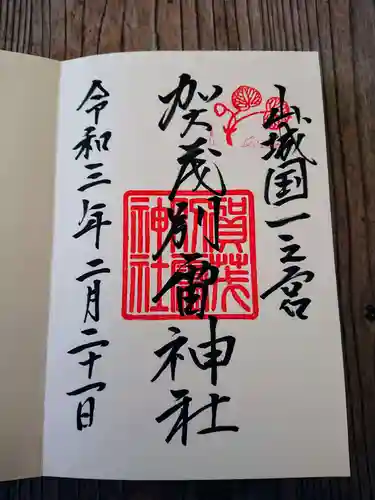 山城国一之宮
賀茂別雷神社
令和三年二月二十一日
賀茂別雷神社